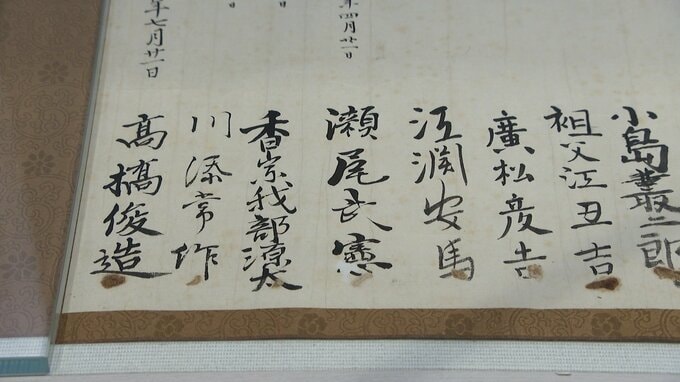 小島叢二郎
祖父江丑吉
廣松彦吉
年四月廿一日
江渕安馬
日
瀬尾武憲
日
香宗我部源太
川添常作
年七月廿一日
高橋俊造